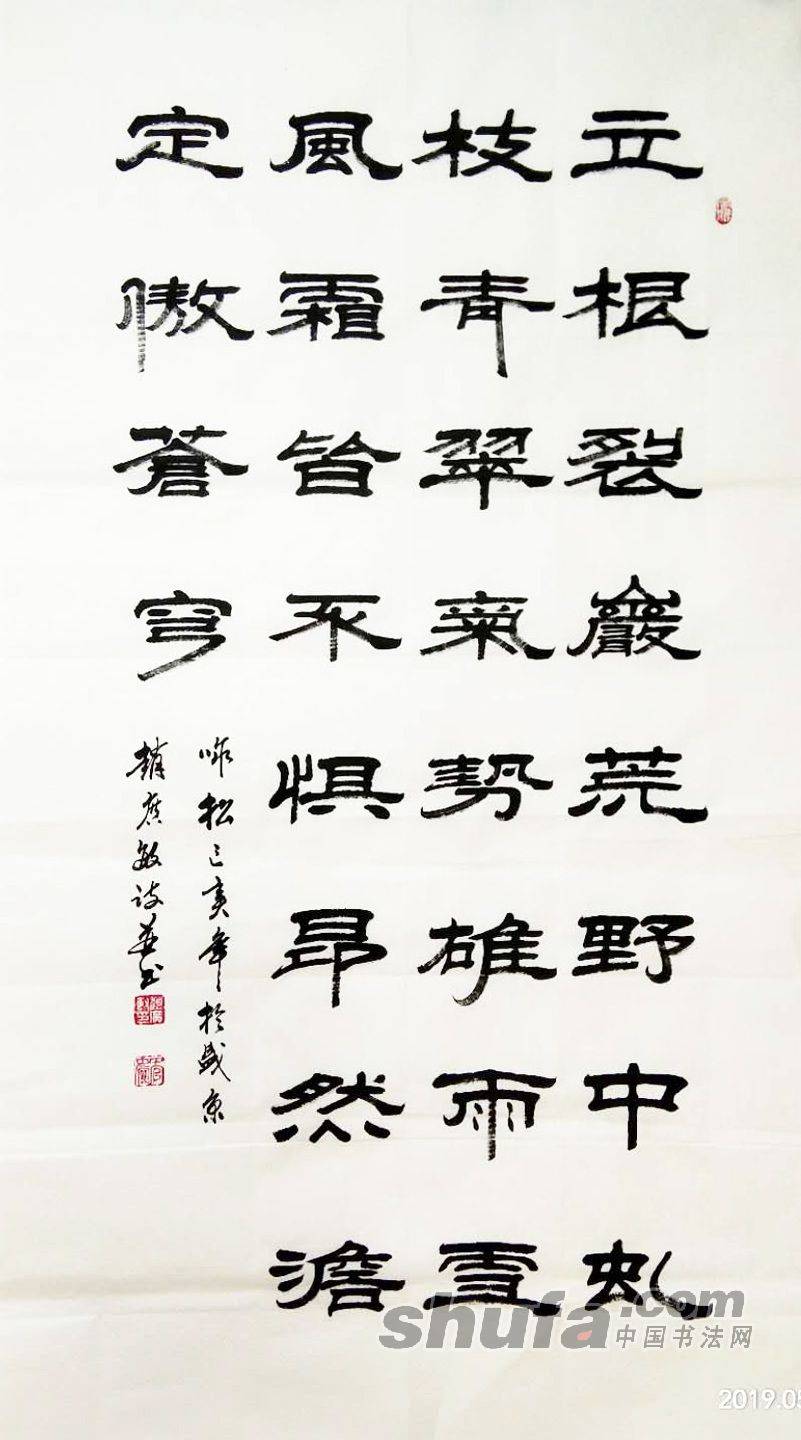 立根裂巖荒野中虬
枝青翠氣勢雄雨雪
風霜皆不惧昂然澹
定傲蒼穹
咏松己亥年於盛京
趙廣敏詩并书
shufa.com
中国书法网
2019.05